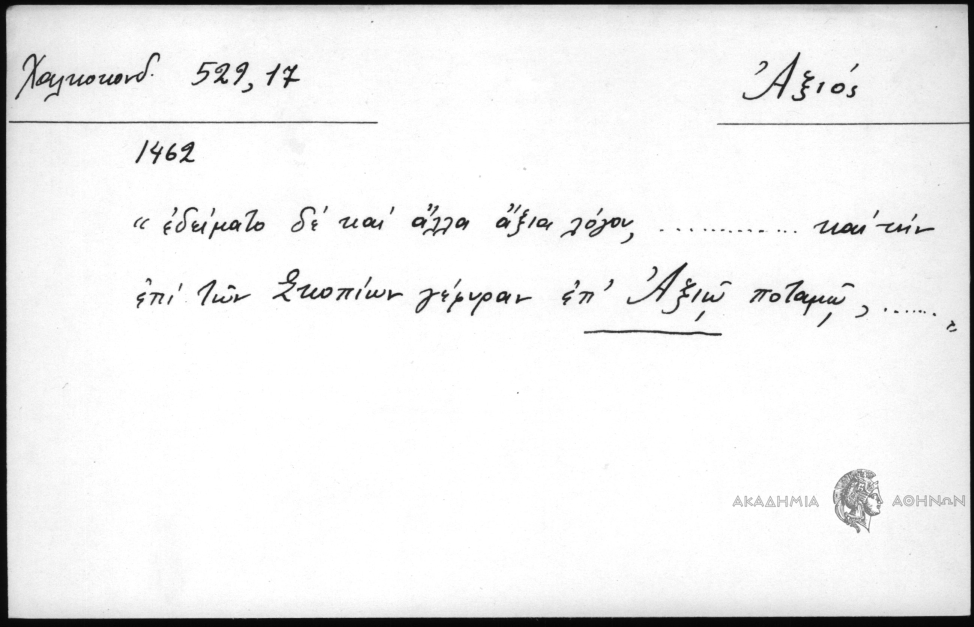 Χαλκοκονδ. 529,17 Ἀξιός
1462
"ἐδείματο δέ καί ἄλλα ἄξια λόγου, .............. καί τήν
ἐπί τῶν Σκοπίων γέφυραν ἐπ' Ἀξιῷ ποταμῷ, ......."
ΑΚΑΔΗΜΙΑ ΑΘΗΝΩΝ